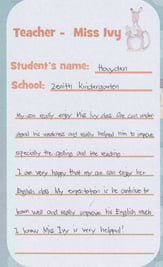 Teacher - Miss Ivy
Student's name: Hayden
School: Zenith Kindergarten
My son really enjoy Miss Ivy class. She can under
stand his weakness and really helped him to improve
especially the spelling and the reading.
I am very happy that my son can enjoy her
English class. My expectation is he continue to
learn well and really improve his English much.
I know Miss Ivy is very helpful!